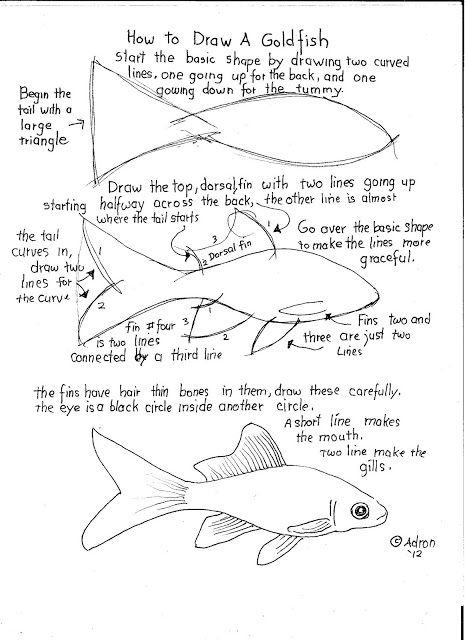 How to Draw A Goldfish
Start the basic shape by drawing two curved
lines, one going up for the back, and one
gowing down for the tummy.
Begin the
tail with a
large
triangle
Draw the top, dorsal, fin with two lines going up
starting halfway across the back, the other line is almost
where the tail starts
1
3
2 Dorsal fin
Go over the basic shape
to make the lines more
graceful.
the tail
curves in,
draw two
lines for
the curve
1
2
1
3
2
fin #four
is two lines
connected by a third line
Fins two and
three are just two
Lines
the fins have hair thin bones in them, draw these carefully.
the eye is a black circle inside another circle.
A short line makes
the mouth.
Two line make the
gills.
© Adron
'12